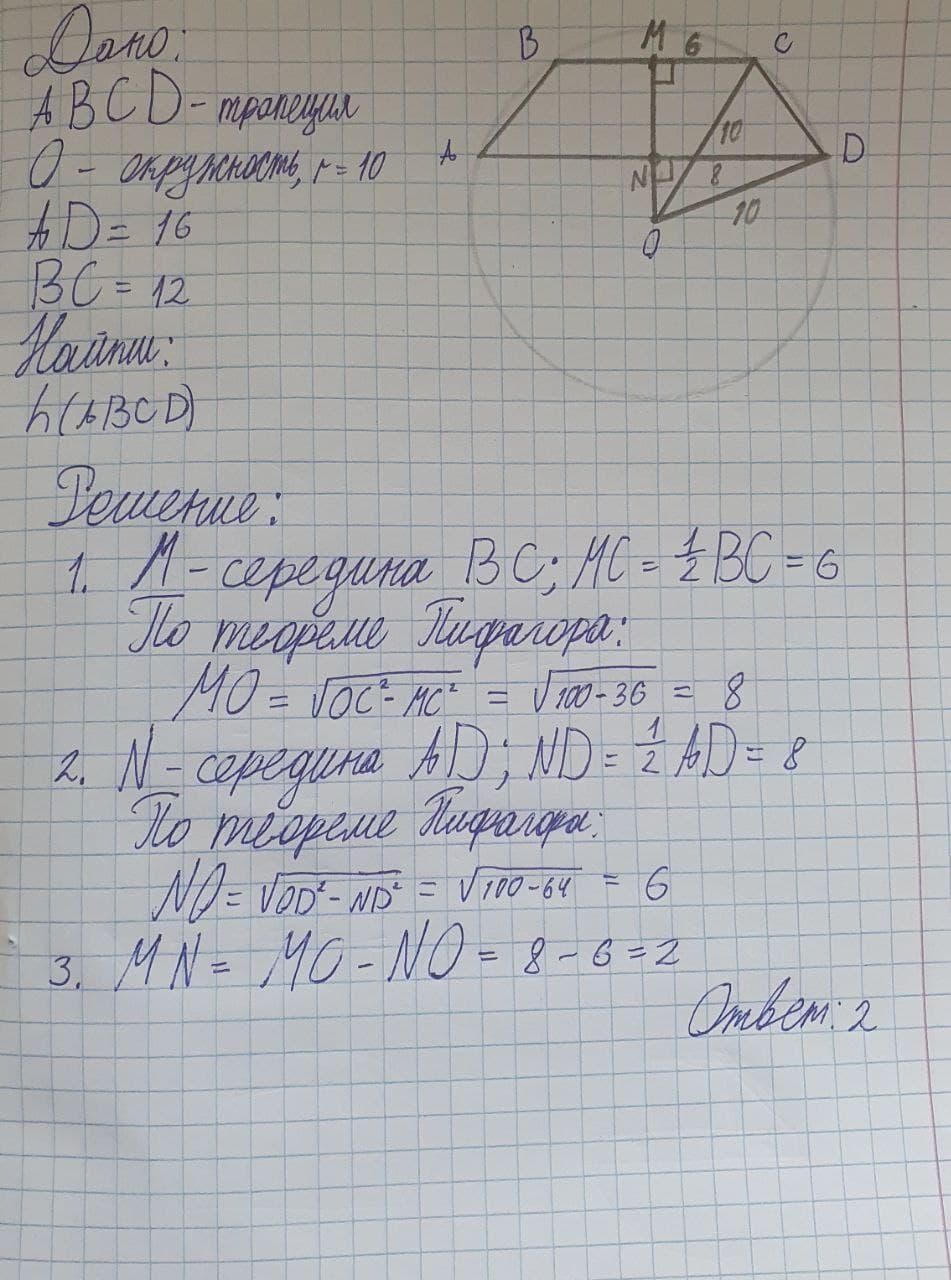 Дано:
ABCD - трапеция
O - окружность, r = 10
AD = 16
BC = 12
Найти:
h(ABCD)
B M 6 C
10
A N 8 D
10
O
Решение:
1. M - середина BC; MC = 1/2 BC = 6
По теореме Пифагора:
MO = √OC² - MC² = √100 - 36 = 8
2. N - середина AD; ND = 1/2 AD = 8
По теореме Пифагора:
NO = √OD² - ND² = √100 - 64 = 6
3. MN = MO - NO = 8 - 6 = 2
Ответ: 2